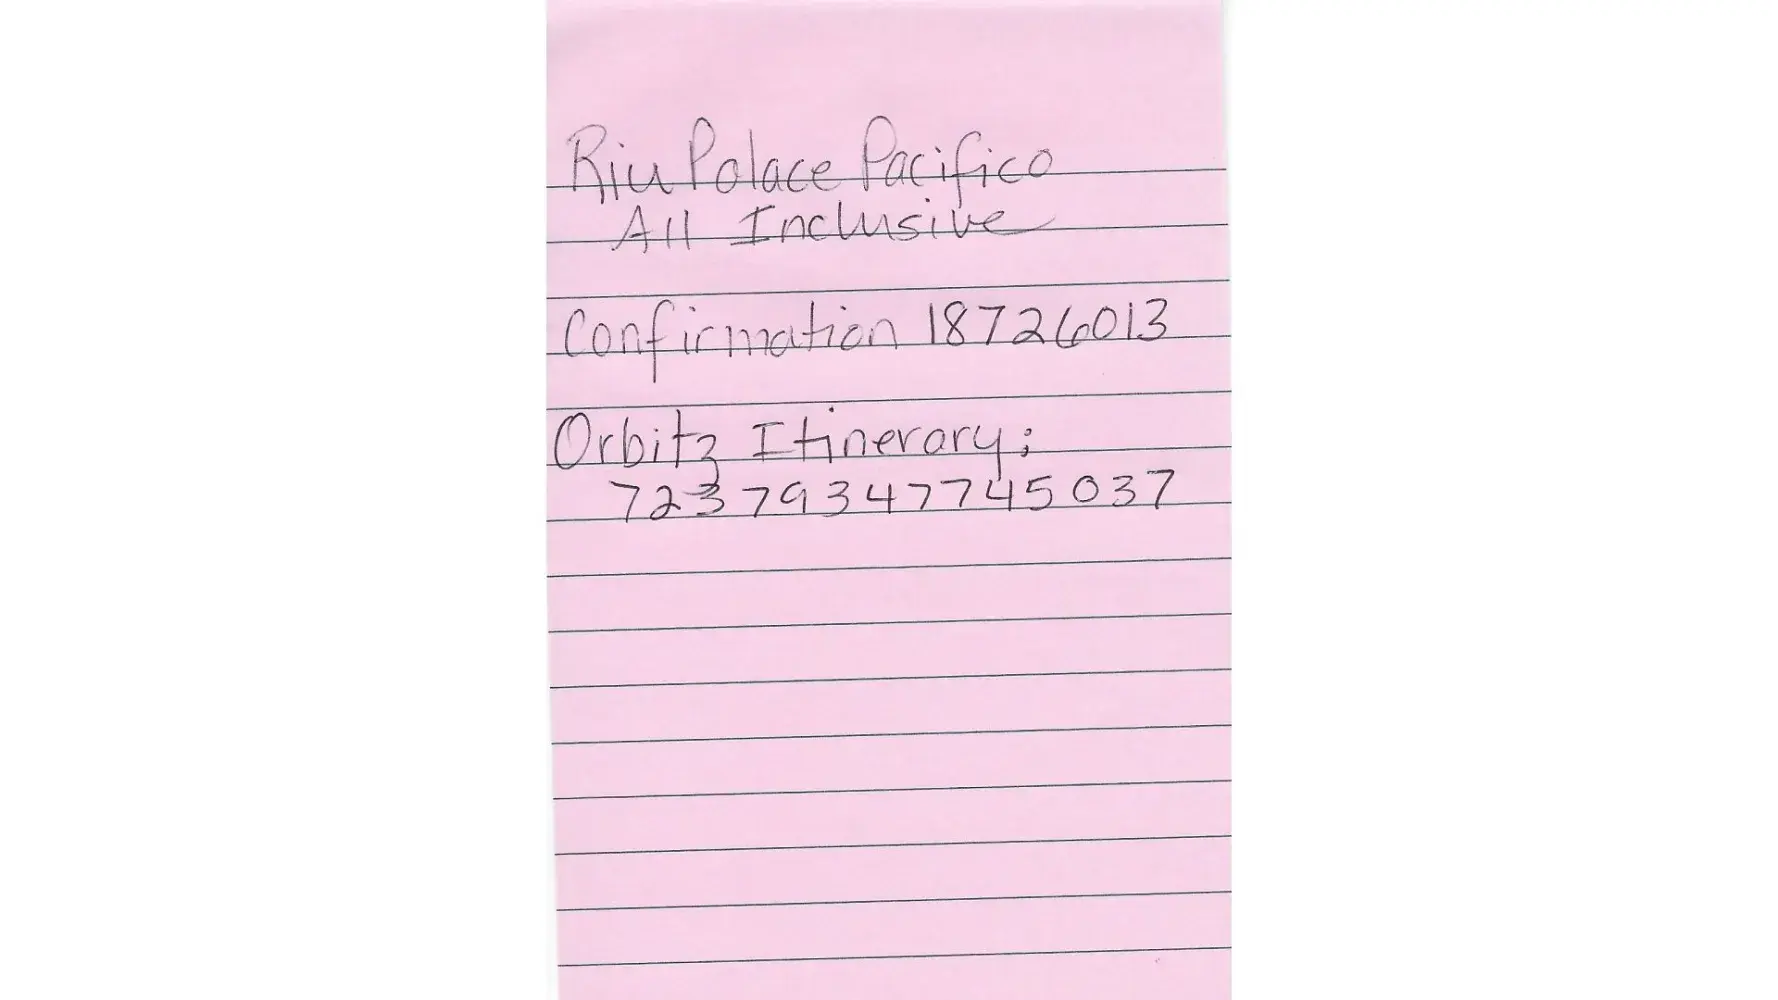 Riu Palace Pacifico
All Inclusive
Confirmation 18726013
Orbitz Itinerary:
72379347745037